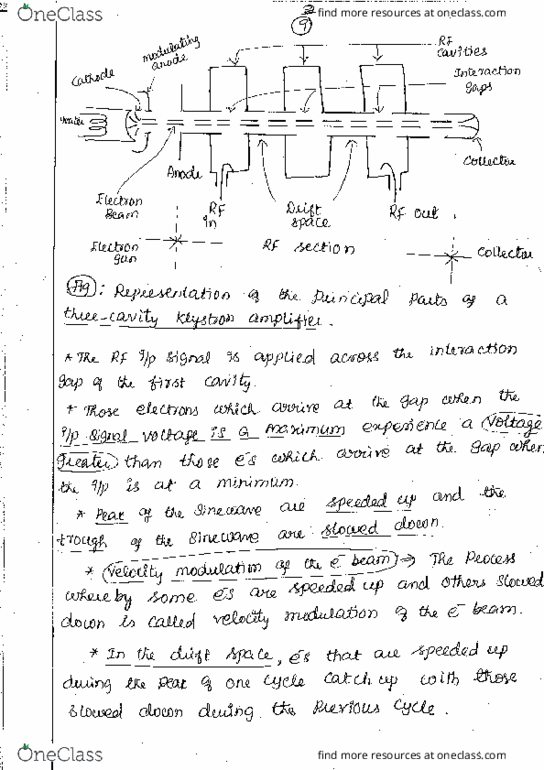 OneClass
find more resources at oneclass.com
9
modulating
anode
RF
cavities
Cathode
Interaction
gaps
Collector
Anode
Electron
Beam
RF
in
Drift
space
RF out
Electron
gun
RF section
Collector
Fig: Representation of the Principal Parts of a
three-cavity klystron amplifier.
* The RF i/p signal is applied across the interaction
gap of the first cavity.
* Those electrons which arrive at the gap when the
i/p signal voltage is a maximum experience a voltage
greater than those e's which arrive at the gap when
the i/p is at a minimum.
* Peak of the sinewave are speeded up and the
trough of the sinewave are slowed down.
* Velocity modulation of the e⁻ beam → The Process
whereby some e's are speeded up and others slowed
down is called velocity modulation of the e⁻ beam.
* In the drift space, e's that are speeded up
during the peak of one cycle catch up with those
slowed down during the Previous cycle.
OneClass
find more resources at oneclass.com